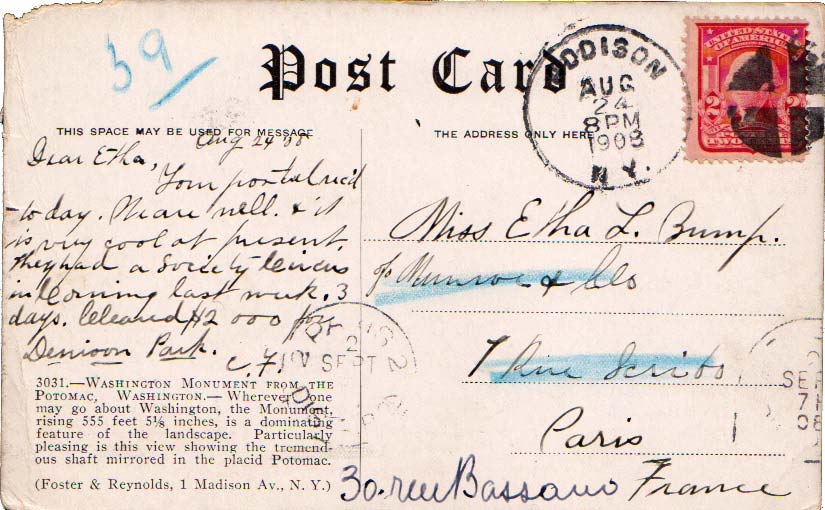 39
Post Card
ADDISON
AUG
24
8PM
1908
N.Y.
UNITED STATES
OF AMERICA
2 2
THIS SPACE MAY BE USED FOR MESSAGE
THE ADDRESS ONLY HERE
Aug 24 '08
Dear Etha,
Your postal rec'd
to day. We are well. & it
is very cool at present.
They had a Society Circus
in Corning last week. 3
days. Cleared $2 000 for
Denison Park.
C. F.
Miss Etha L. Bump.
c/o Munroe & Co
7 Rue Scribe
Paris
30. rue Bassano France
PARIS
SEPT
SEP
7
08
3031.—WASHINGTON MONUMENT FROM THE
POTOMAC, WASHINGTON.— Wherever one
may go about Washington, the Monument,
rising 555 feet 5⅛ inches, is a dominating
feature of the landscape. Particularly
pleasing is this view showing the tremend-
ous shaft mirrored in the placid Potomac.
(Foster & Reynolds, 1 Madison Av., N. Y.)